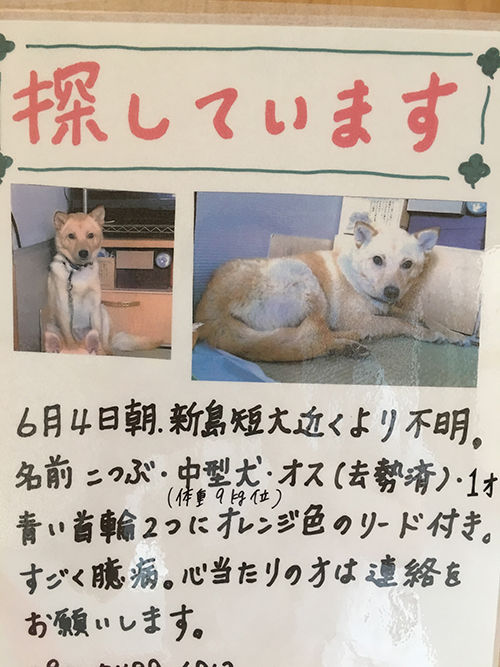 探しています
6月4日朝.新島短大近くより不明。
名前 こつぶ・中型犬・オス(去勢済)・1才
(体重9kg位)
青い首輪2つにオレンジ色のリード付き。
すごく臆病。心当たりの方は連絡を
お願いします。